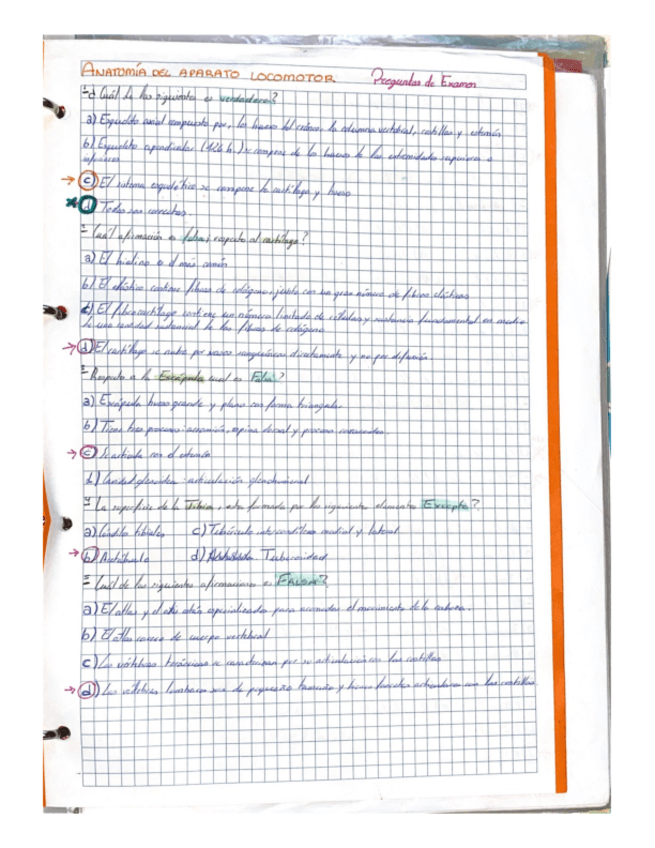 ANATOMÍA DEL APARATO LOCOMOTOR Preguntas de Examen
1- ¿Cuál de las siguientes es verdadera?
a) Esqueleto axial compuesto por, los huesos del cráneo, la columna vertebral, costillas y esternón
b) Esqueleto apendicular (126 h.) se compone de los huesos de las extremidades superiores e
inferiores
→ c) El sistema esquelético se compone de cartílago y hueso
d) Todas son correctas.
¿Cuál afirmación es falsa, respecto al cartílago?
a) El hialino es el más común
b) El elástico contiene fibras de colágeno, junto con un gran número de fibras elásticas
c) El fibrocartílago contiene un número limitado de células y sustancia fundamental en medio
de una cantidad sustancial de las fibras de colágeno
→ d) El cartílago se nutre por vasos sanguíneos directamente y no por difusión
Respecto a la Escápula cual es Falsa?
a) Escápula hueso grande y plano con forma triangular
b) Tiene tres procesos: acromión, espina dorsal y proceso coracoides.
→ c) Se articula con el esternón
d) Cavidad glenoidea: articulación glenohumeral
La superficie de la Tibia, esta formada por los siguientes elementos Excepto?
a) Cóndilos tibiales c) Tubérculo intercondíleo medial y lateral
→ b) Acetábulo d) Tuberosidad
¿Cuál de las siguientes afirmaciones es FALSA?
a) El atlas y el axis están especializados para acomodar el movimiento de la cabeza.
b) El atlas carece de cuerpo vertebral
c) Las vértebras torácicas se caracterizan por su articulación con las costillas
→ d) Las vértebras lumbares son de pequeño tamaño y tienen facetas articulares con las costillas